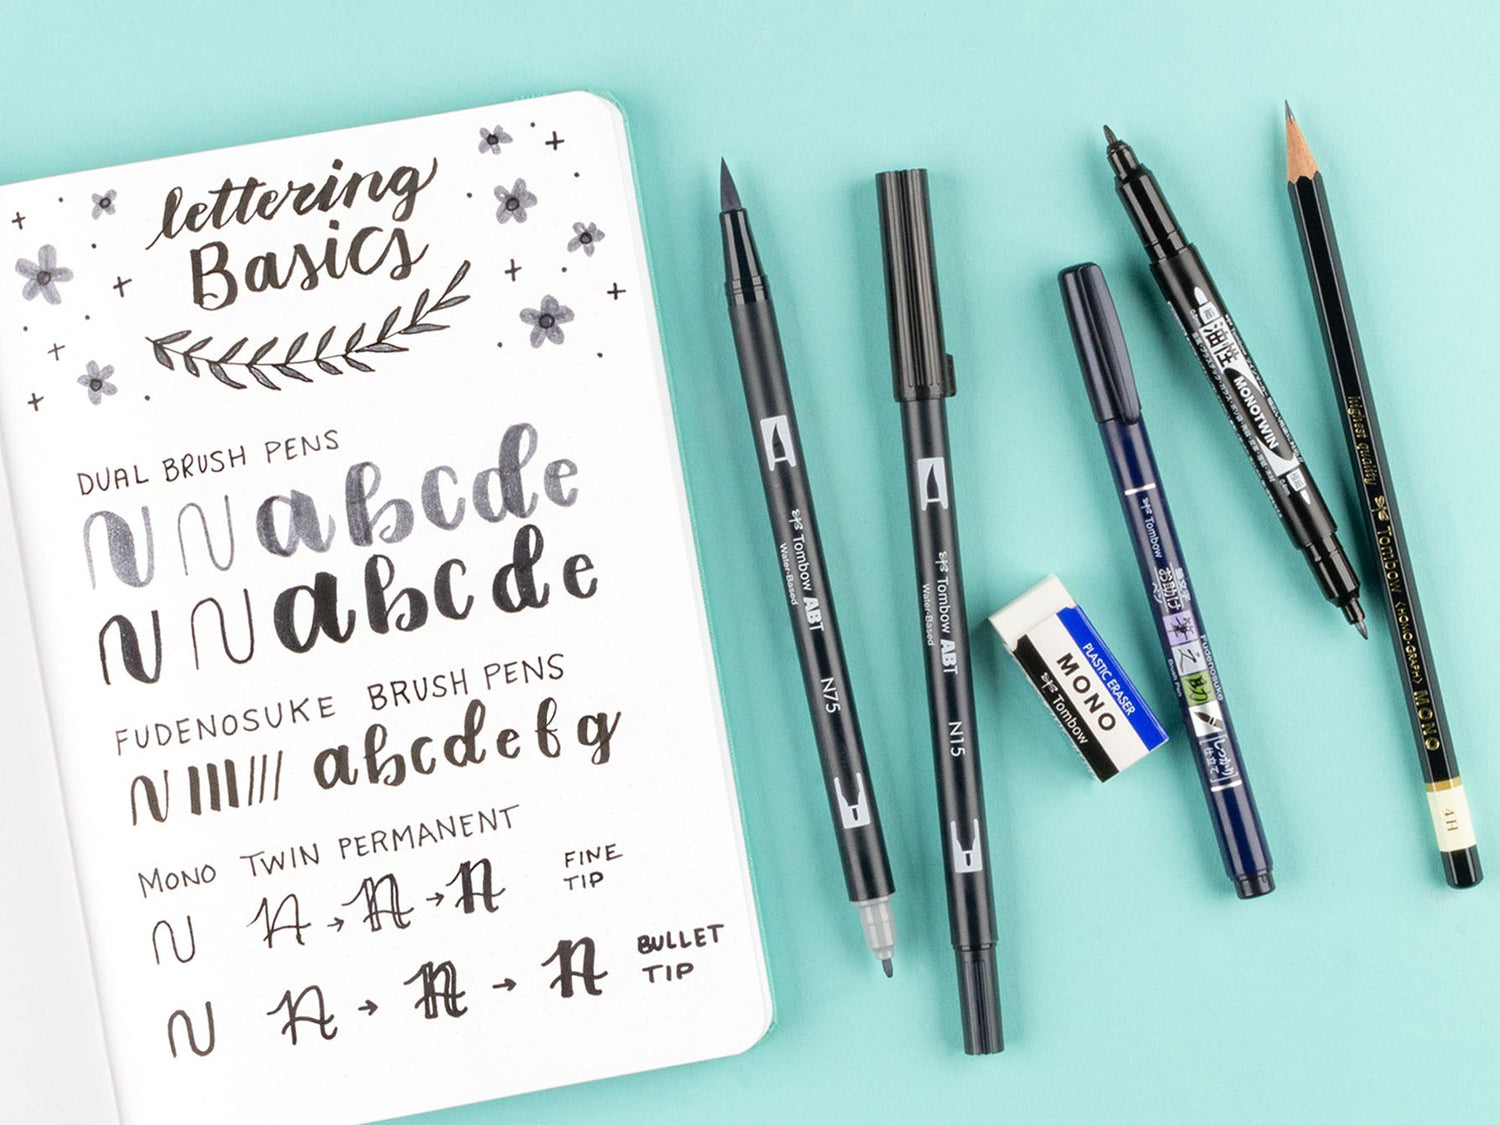 lettering
Basics
DUAL BRUSH PENS
N N abcde
N N abcde
FUDENOSUKE BRUSH PENS
N abcdefg
MONO TWIN PERMANENT
N A → A → A FINE
TIP
N A → A → A BULLET
TIP
Tombow ABT
Water-Based
N75
Tombow ABT
Water-Based
N15
PLASTIC ERASER
MONO
Tombow
Tombow
お助け
筆之助
Fudenosuke
Brush Pen
しっかり
仕立て
油性
MONOTWIN
highest quality Tombow <MONO-GRAPH> MONO
4H